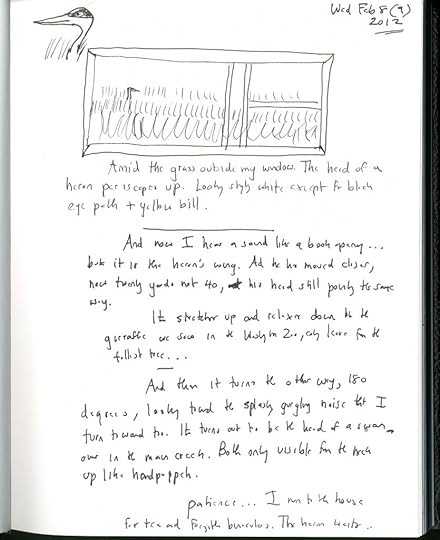 Wed Feb 8 (9)
2012
Amid the grass outside my window. The head of a
heron periscopes up. Looks white except for black
eye path + yellow bill.
And now I hear a sound like a book opening...
but it is the heron's wing. And he has moved closer,
now twenty yards not 40, his head still pointy the same
way.
It stretches up and relaxes down like the
giraffe we saw in the Zoo, only leave for the
tallest tree...
And then it turns the other way, 180
degrees, looking toward the splashy gurgling noise that I
turn toward too. It turns out to be the head of a swan
over in the main creek. Both only visible from the neck
up like handpuppets.
patience... I run to the house
for tea and forget binoculars. The heron waits..